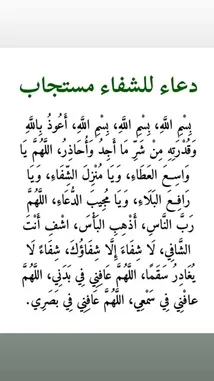 دعاء للشفاء مستجاب
بِسْمِ اللَّهِ، بِسْمِ اللَّهِ، بِسْمِ اللَّهِ، أَعُوذُ بِاللَّهِ
وَقُدْرَتِهِ مِنْ شَرِّ مَا أَجِدُ وَأُحَاذِرُ، اللَّهُمَّ يَا
وَاسِعَ العَطَاءِ، وَيَا مُنْزِلَ الشِّفَاءِ، وَيَا
رَافِعَ البَلَاءِ، وَيَا مُجِيبَ الدُّعَاءِ، اللَّهُمَّ
رَبَّ النَّاسِ، أَذْهِبِ البَأْسَ، اشْفِ أَنْتَ
الشَّافِي، لَا شِفَاءَ إِلَّا شِفَاؤُكَ، شِفَاءً لَا
يُغَادِرُ سَقَمًا، اللَّهُمَّ عَافِنِي فِي بَدَنِي، اللَّهُمَّ
عافْنِي فِي سَمْعِي، اللَّهُمَّ عَافِنِي فِي بَصَرِي.